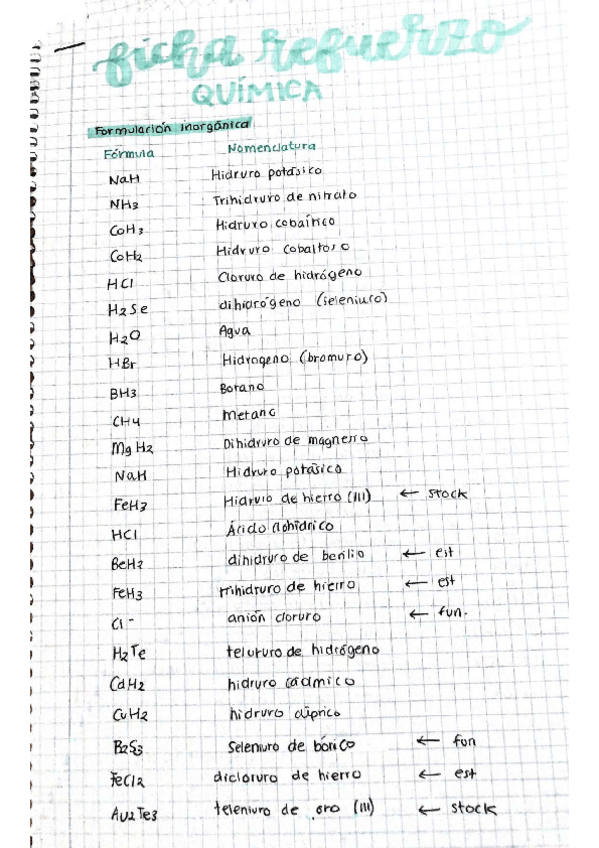 ficha refuerzo
QUÍMICA
Formulación inorgánica
Fórmula Nomenclatura
NaH Hidruro potásico
NH3 Trihidruro de nitrato
CoH3 Hidruro cobáltico
CoH2 Hidruro cobaltoso
HCl Cloruro de hidrógeno
H2Se dihidrógeno (seleniuro)
H2O Agua
HBr Hidrogeno (bromuro)
BH3 Borano
CH4 Metano
MgH2 Dihidruro de magnesio
NaH Hidruro potásico
FeH3 Hidruro de hierro (III) ← stock
HCl Ácido clohídrico
BeH2 dihidruro de berilio ← est
FeH3 trihidruro de hierro ← est
Cl- anión cloruro ← fun.
H2Te telururo de hidrógeno
CdH2 hidruro cádmico
CuH2 hidruro cúprico
B2S3 Seleniuro de bórico ← fun
FeCl2 dicloruro de hierro ← est
Au2Te3 teleniuro de oro (III) ← stock